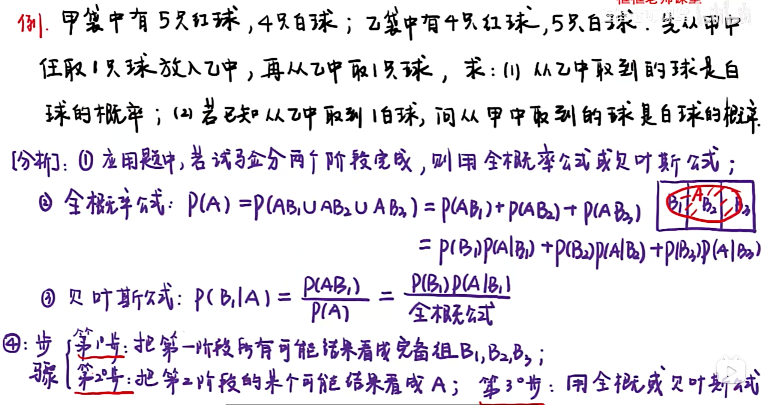 例. 甲袋中有5只红球,4只白球;乙袋中有4只红球,5只白球.先从甲中
任取1只球放入乙中,再从乙中取1只球,求:(1)从乙中取到的球是白
球的概率;(2)若已知从乙中取到1白球,问从甲中取到的球是白球的概率.
[分析]:① 应用题中,若试验分两个阶段完成,则用全概率公式或贝叶斯公式;
② 全概率公式:P(A)=P(AB₁∪AB₂∪AB₃)=P(AB₁)+P(AB₂)+P(AB₃) B₁ A B₂ B₃
=P(B₁)P(A|B₁)+P(B₂)P(A|B₂)+P(B₃)P(A|B₃)
③ 贝叶斯公式:P(B₁|A)=P(AB₁)/P(A)=P(B₁)P(A|B₁)/全概公式
④:步骤 第1°步:把第一阶段所有可能结果看成完备组B₁,B₂,B₃;
第2°步:把第2阶段的某个可能结果看成A;第3°步:用全概或贝叶斯公式